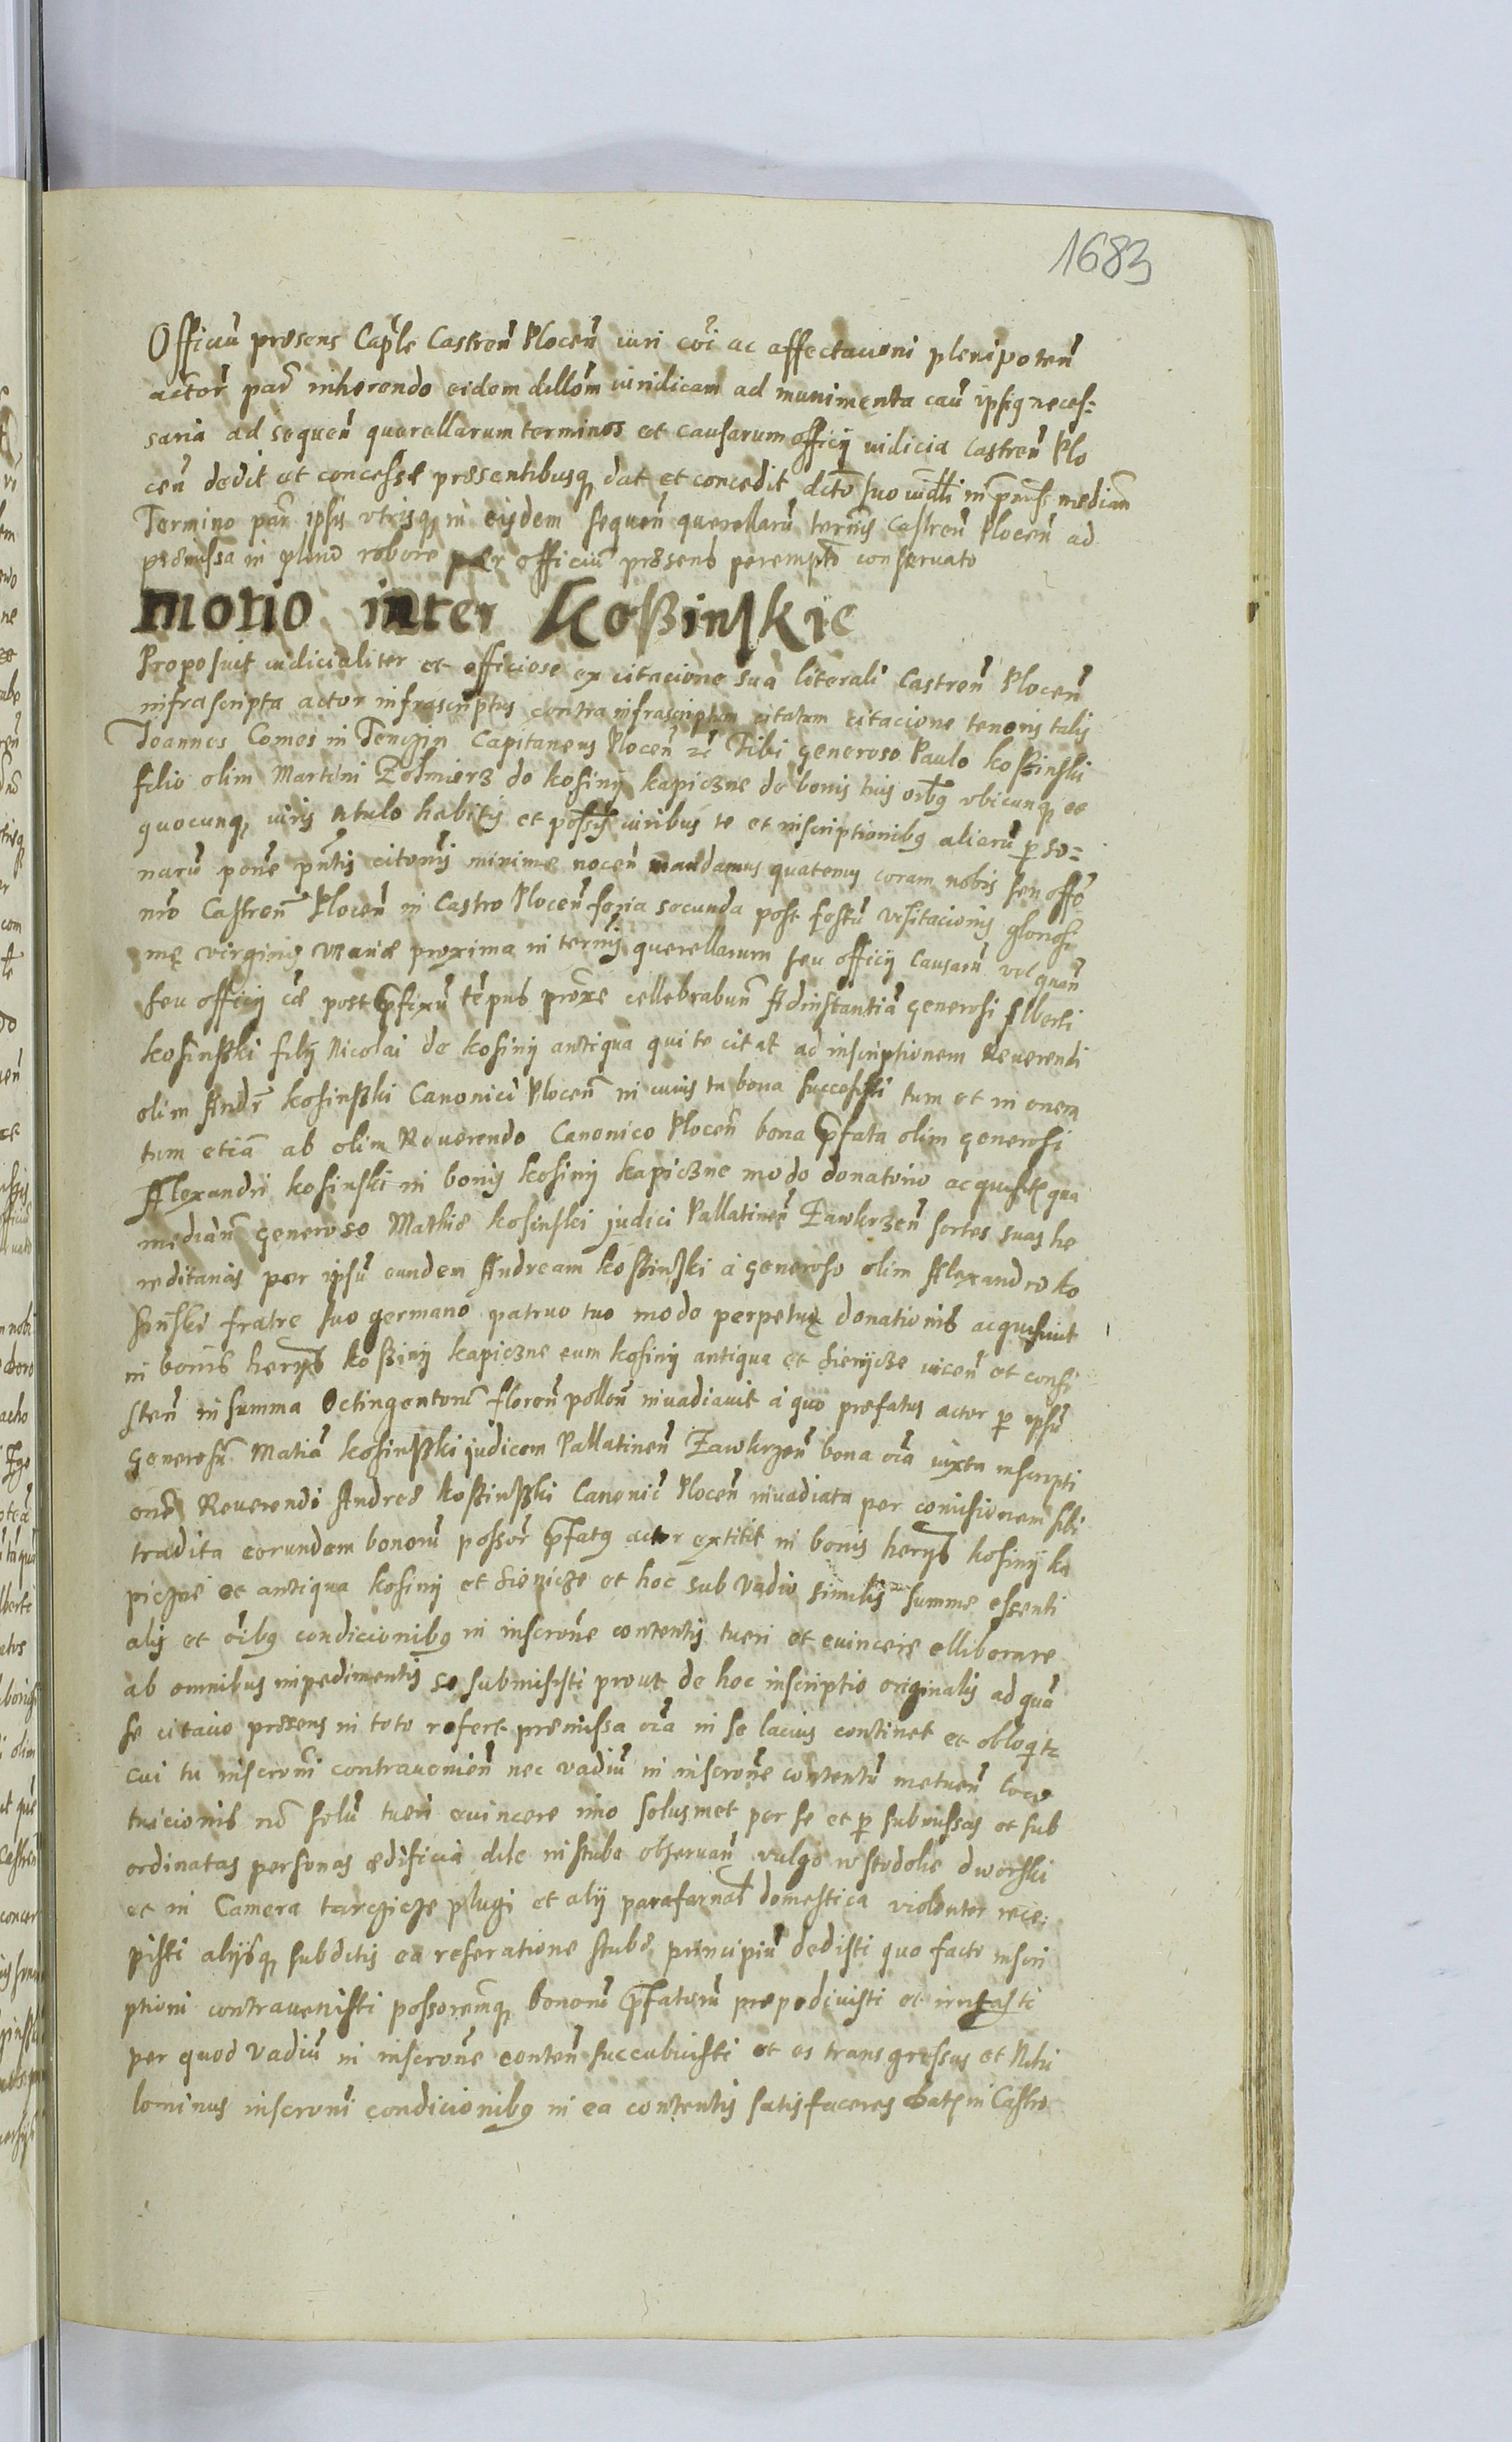 1683
Officiũ præsens Caple Castreñ Ploceñ iuri cõi ac affectacioni plenipoteñ
actoř pař inherendo eidem dillõm iuridicam ad munimenta cau ipsiq neces=
saria ad sequeñ querellarum terminos et causarum officij iudicia Castreñ Plo
ceñ dedit et concessit præsentibusq dat et concedit dcto suo iudli in præmis median
Termino par ipsis vtrisq in eisdem sequeñ querellarũ terñis Castreñ Ploceñ ad
præmissa in pleno robore per officiũ præsens perempto conseruato
Motio inter Koßinskie
Proposuit iudicialiter et officiose ex citacione sua literali Castreñ Ploceñ
infrascripta actor infrascriptus contra infrascriptum citatum citacione tenoris talis
Joannes Comes in Tenczin Capitaneus Ploceñ zc Tibi generoso Paulo Koßinski
filio olim Martini Zolmierz de Kosiny Kapiczne de bonis tuis oibq vbicunq et
quocunq iuris titulo habitis et possis iuribus te et inscriptionibq aliarũ perso=
narũ porie pntis citonis minime noceñ mandamus quatenus coram nobis seu offo
nro Castreñ Ploceñ in Castro Ploceñ feria secunda post festũ visitacionis gloriosi
mę virginis Mariæ proxima in terñis querellarum seu officij Causarũ vel quañ
seu officij cæ post præfixũ tẽpus proxe cellebrabuñ Ad instantiã generosi Alberti
Kosinßki filij Nicolai de Kosiny antiqua qui te citat ad inscriptionem Reuerendi
olim Andř Kosinßki Canonici Ploceñ in cuius tu bona successisti tum et in onera
tum etiã ab olim Reuerendo Canonico Ploceñ bona præfata olim generosi
Alexandri Kosinski in bonis Kosiny Kapiczne modo donatorio acquisit qua
mediañ generoso Mathiæ Kosinski judici Pallatineñ Zawkrzeñ sortes suas he
reditarias per ipsũ eundem Andream Koßinski a generoso olim Alexandro Ko
sinski fratre suo germano patruo tuo modo perpetuę donationis acquisiuit
in bonis herijs Koßiny Kapiczne eum Kosiny antiqua et Sienicze iaceñ et consi
steñ in summa Octingentorũ floreñ polloñ inuadiauit a quo præfatus actor per ipsũ
generosũ Matiã Kosinßki judicem Pallatineñ Zawkrzeñ bona oia iuxta inscripti
one Reuerendi Andreæ Koßinßki Canonici Ploceñ inuadiata per comisionem sibi
tradita eorundem bonorũ possoř præfatq actor extitit in bonis herijs Kosiny Ka
piczne et antiqua Kosiny et Sienicze et hoc sub vadio similis summe essenti
alis et oibq condicionibq in inscrone contentis tueri et euincere elliberare
ab omnibus impedimentis se submisisti prout de hoc inscriptio originalis ad quã
se citacio præsens in toto refert præmissa oia in se lacius continet et obloqtc
cui tu inscroni contraueniẽn nec vadiũ in inscrone contentũ metueñ loco
tuicionis no solũ tueri euincere imo solusmet per se et per submissas et sub
ordinatas personas ædificia dile in stuba obseruañ vulgo w stodolie dworski
et in Camera tarczicze plugi et alij parafarnal domestica violenter rece=
pisti alijsq subditis ea reseratione stubæ principiũ dedisti quo facto inscri
ptioni contrauenisti possoremq bonorũ præfatorũ præpediuisti et irritasti
per quod vadiũ in inscrone conteñ succubuisti et es transgressus et Nihi
lominus inscroni condicionibq in ea contentis satisfaceres Dat in Castro